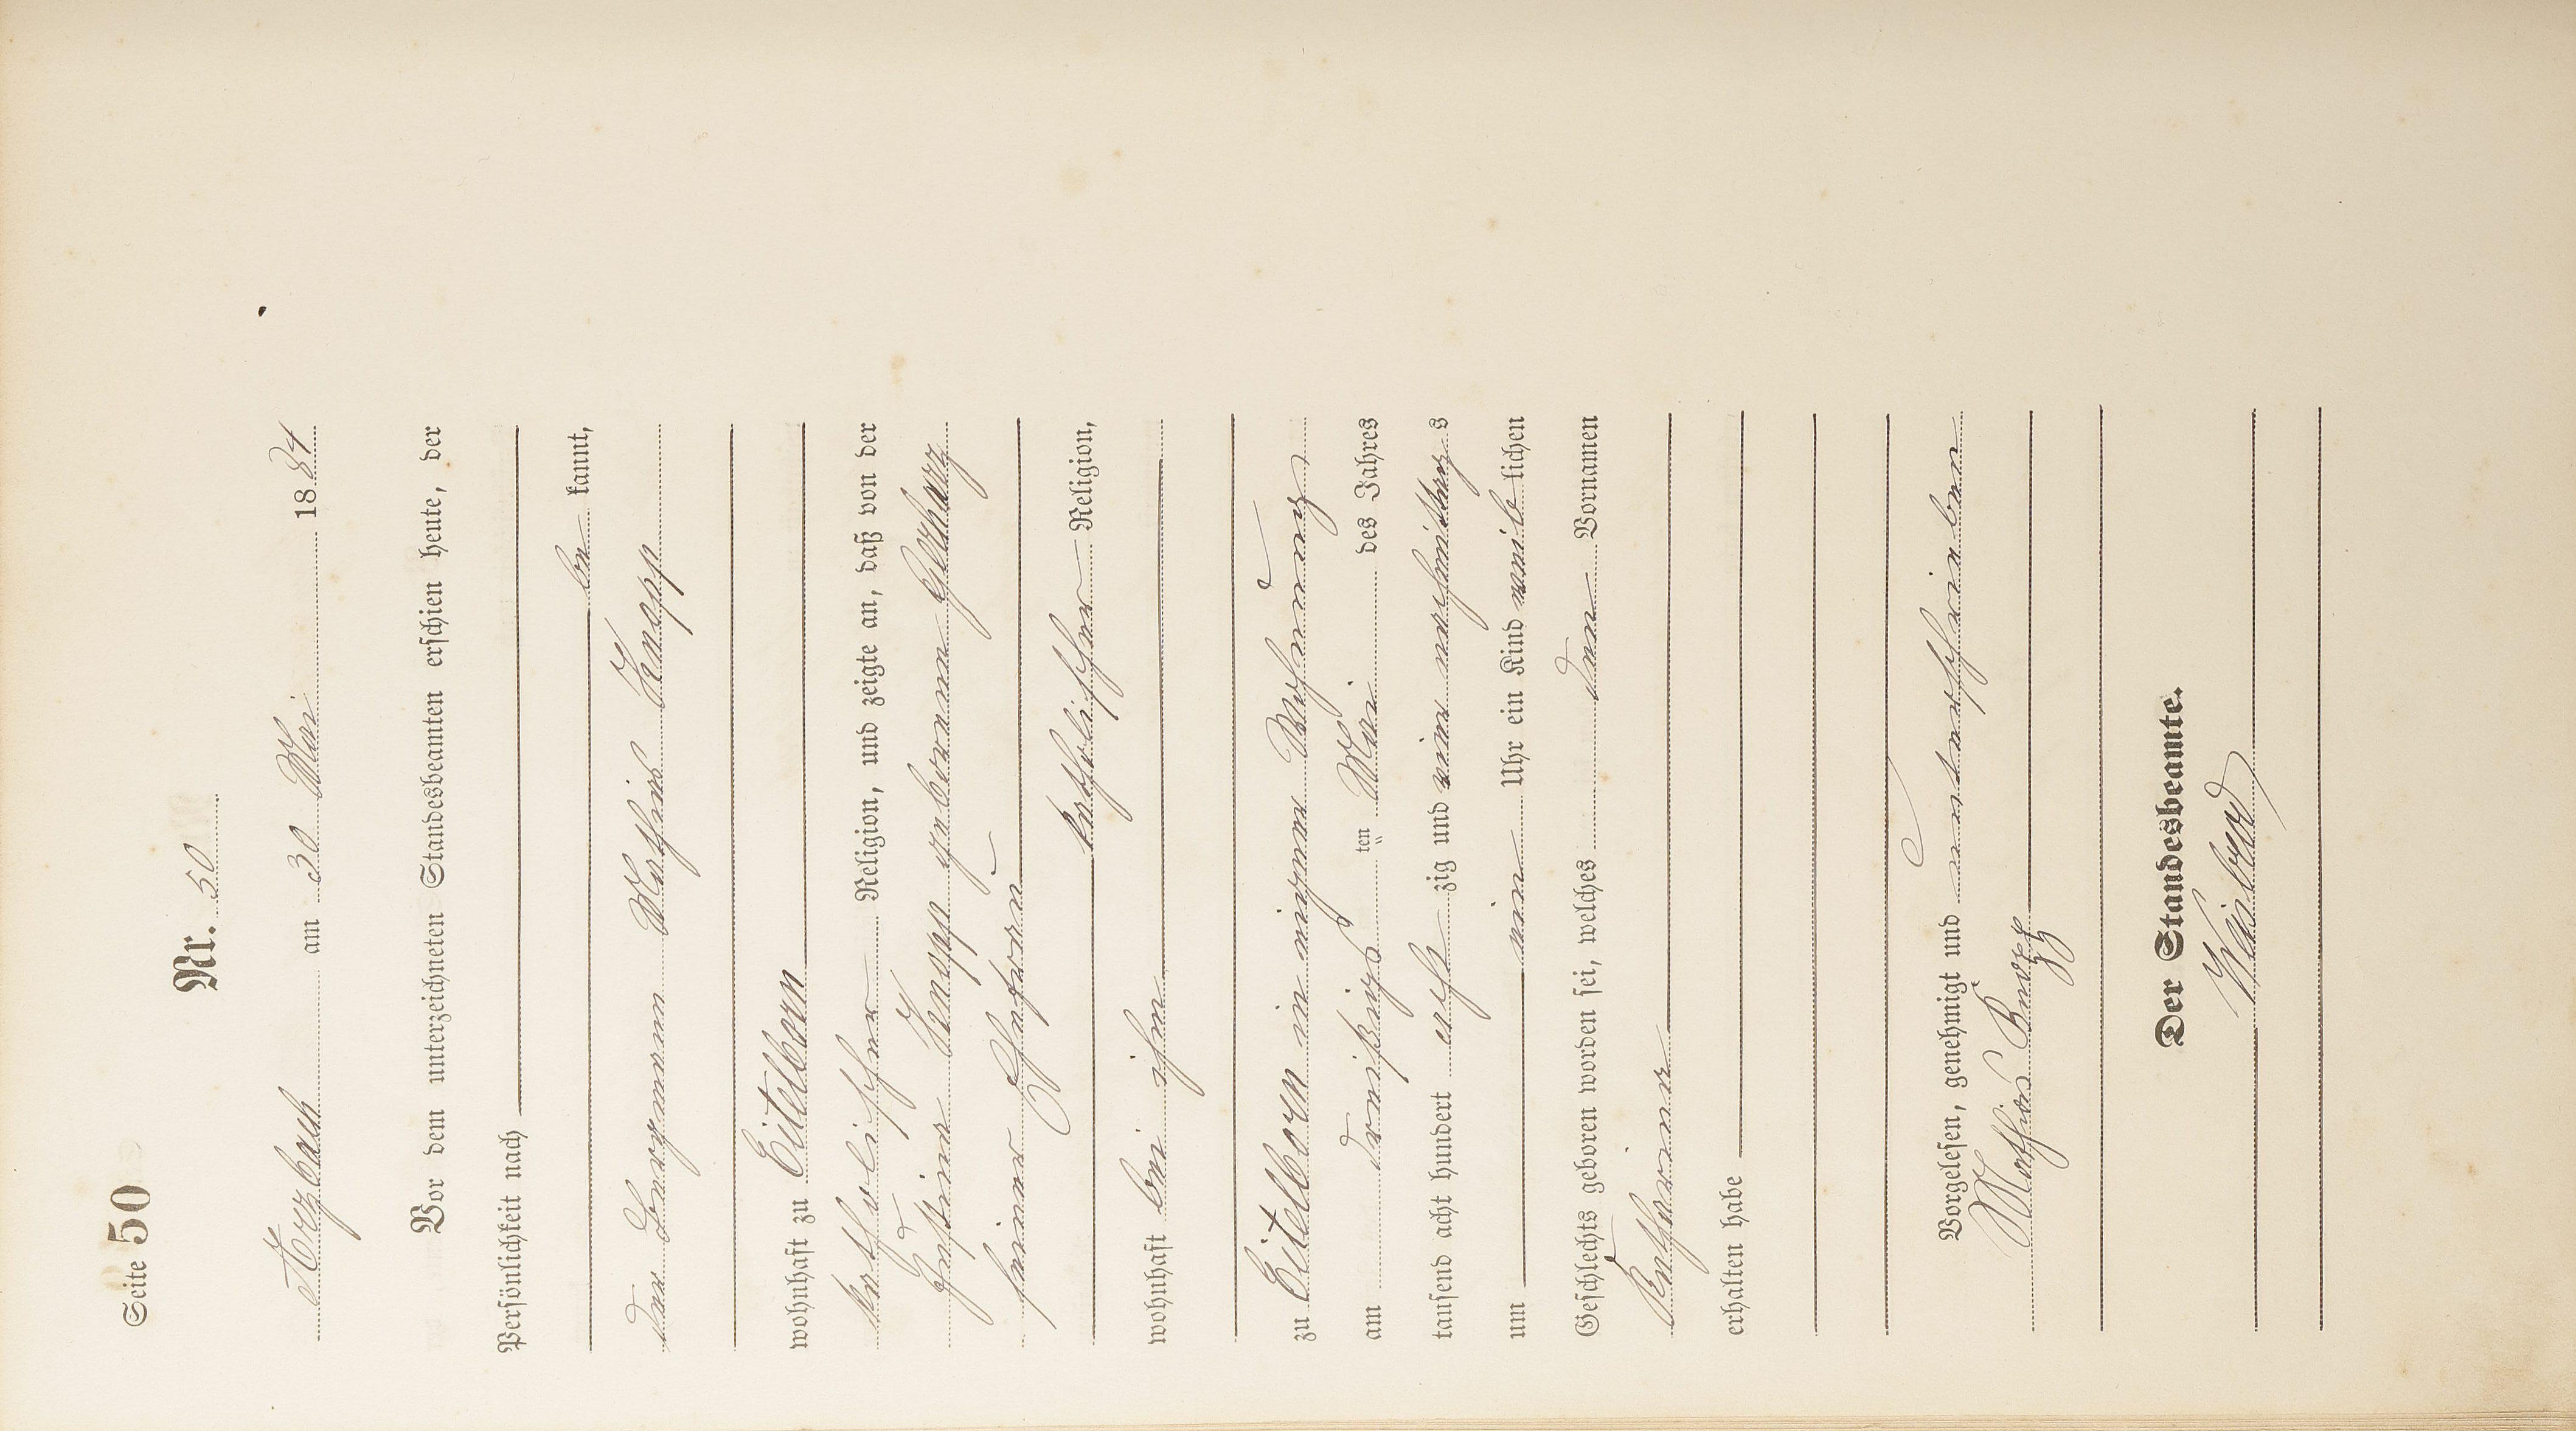 Seite 50
Nr. 50
Arzbach am 30 Mai 1884
Vor dem unterzeichneten Standesbeamten erschien heute, der
Persönlichkeit nach
be kannt,
der Bergmann Mathias Knopp
wohnhaft zu Eitelborn
katholischer Religion, und zeigte an, daß von der
Knopp geborenen Gerharz
seiner Ehefrau
katholischer Religion,
wohnhaft bei ihm
zu Eitelborn in einer Wohnung
am dreißigs ten Mai des Jahres
tausend acht hundert acht zig und vier nachmittags
um ein Uhr ein Kind weib lichen
Geschlechts geboren worden sei, welches den Vornamen
Katharina
erhalten habe
Vorgelesen, genehmigt und unterschrieben
Mathias
Der Standesbeamte.